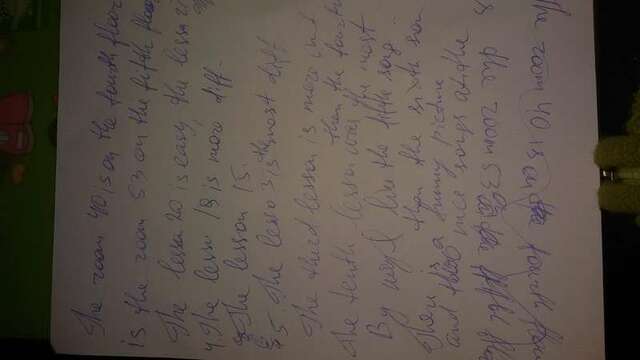 The room 40 is on the fourth floor
is the room 53 on the fifth floor
The lesson 20 is easy, the lesson 2
4. The lesso 18 is more diff-
The lesson 15.
5. The lesso 3 is the most diff
The third lesson is more int
than the fourth
The tenth lesson was the most
By way I like the fifth song
than the sixth son
There is a funny picture
and nice songs at the
is the room 53 on the fifth
The room 40 is on the fourth floor